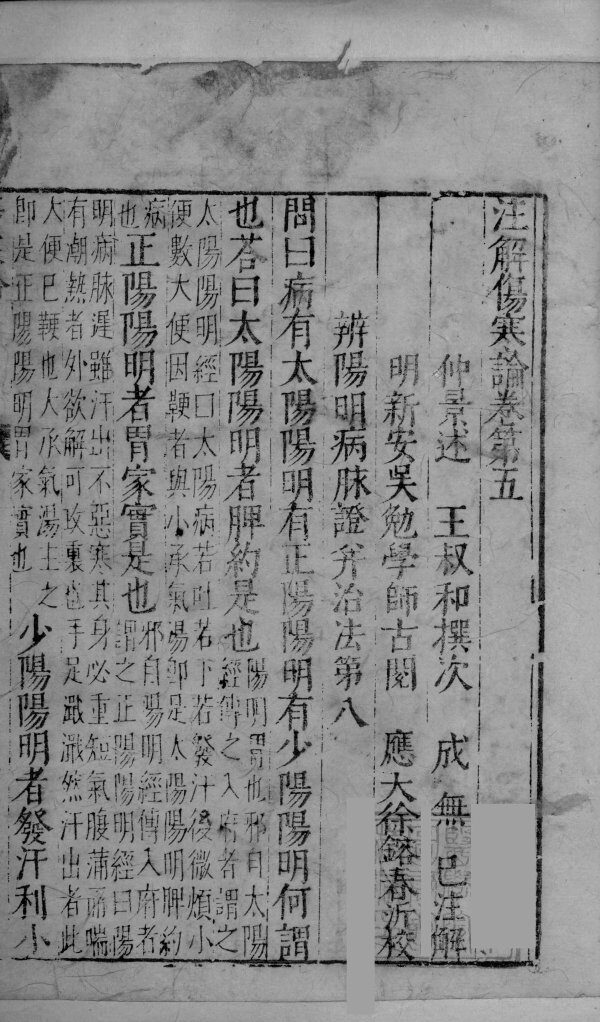 注解傷寒論卷第五
仲景述 王叔和撰次 成無已注解
明新安吳勉學師古閱 應大徐鎔春沂校
辨陽明病脉證并治法第八
問曰病有太陽陽明有正陽陽明有少陽陽明何謂
也荅曰太陽陽明者脾約是也
陽明胃也邪自太陽
經傳之入府者謂之
太陽陽明經曰太陽病若吐若下若發汗後微煩小
便數大便因鞕者與小承氣湯即是太陽陽明脾約
病
也
正陽陽明者胃家實是也
邪自陽明經傳入府者
謂之正陽陽明經曰陽
明病脉遲雖汗出不惡寒其身必重短氣腹滿而喘
有潮熱者外欲解可攻裏也手足濈濈然汗出者此
大便已鞕也大承氣湯主之
即是正陽陽明胃家實也
少陽陽明者發汗利小